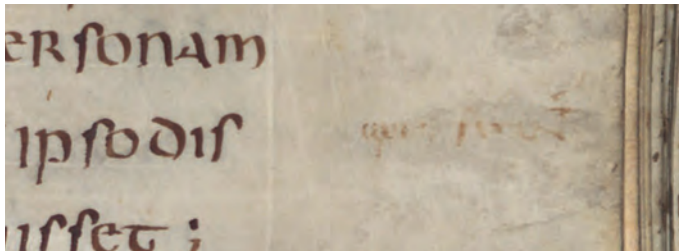 ersonam
ipso dis
isset ;